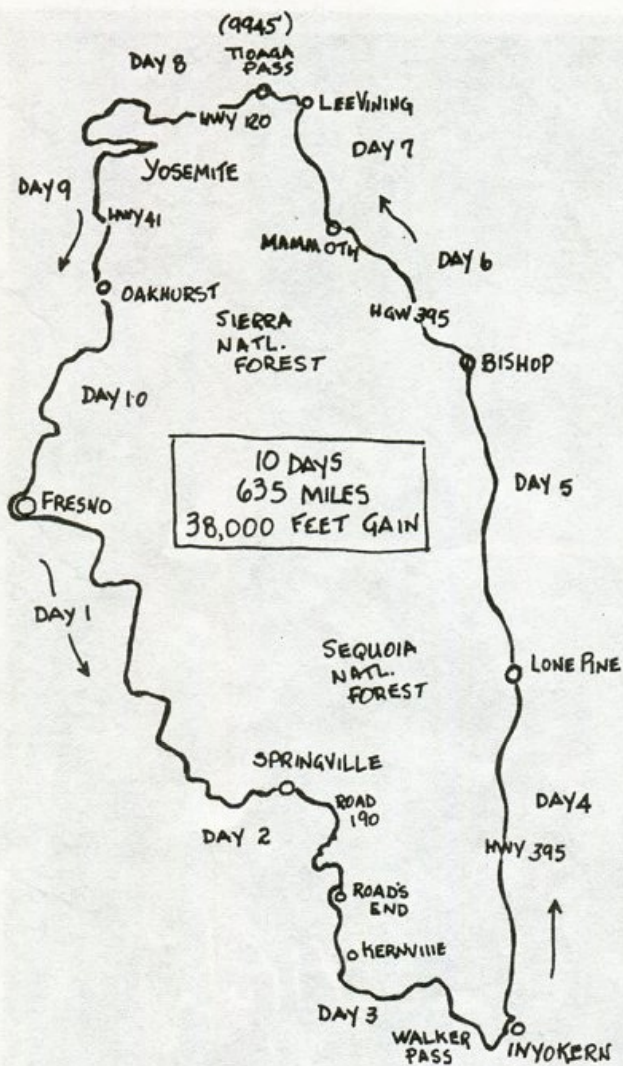 (9945')
TIOAGA
PASS
DAY 8
LEE VINING
HWY 120
DAY 7
YOSEMITE
DAY 9
HWY 41
MAMMOTH
DAY 6
OAKHURST
HGW 395
SIERRA
NATL.
FOREST
BISHOP
DAY 10
10 DAYS
635 MILES
38,000 FEET GAIN
DAY 5
FRESNO
DAY 1
SEQUOIA
NATL.
FOREST
LONE PINE
SPRINGVILLE
ROAD
190
DAY 2
DAY 4
HWY 395
ROAD'S
END
KERNVILLE
DAY 3
WALKER
PASS
INYOKERN